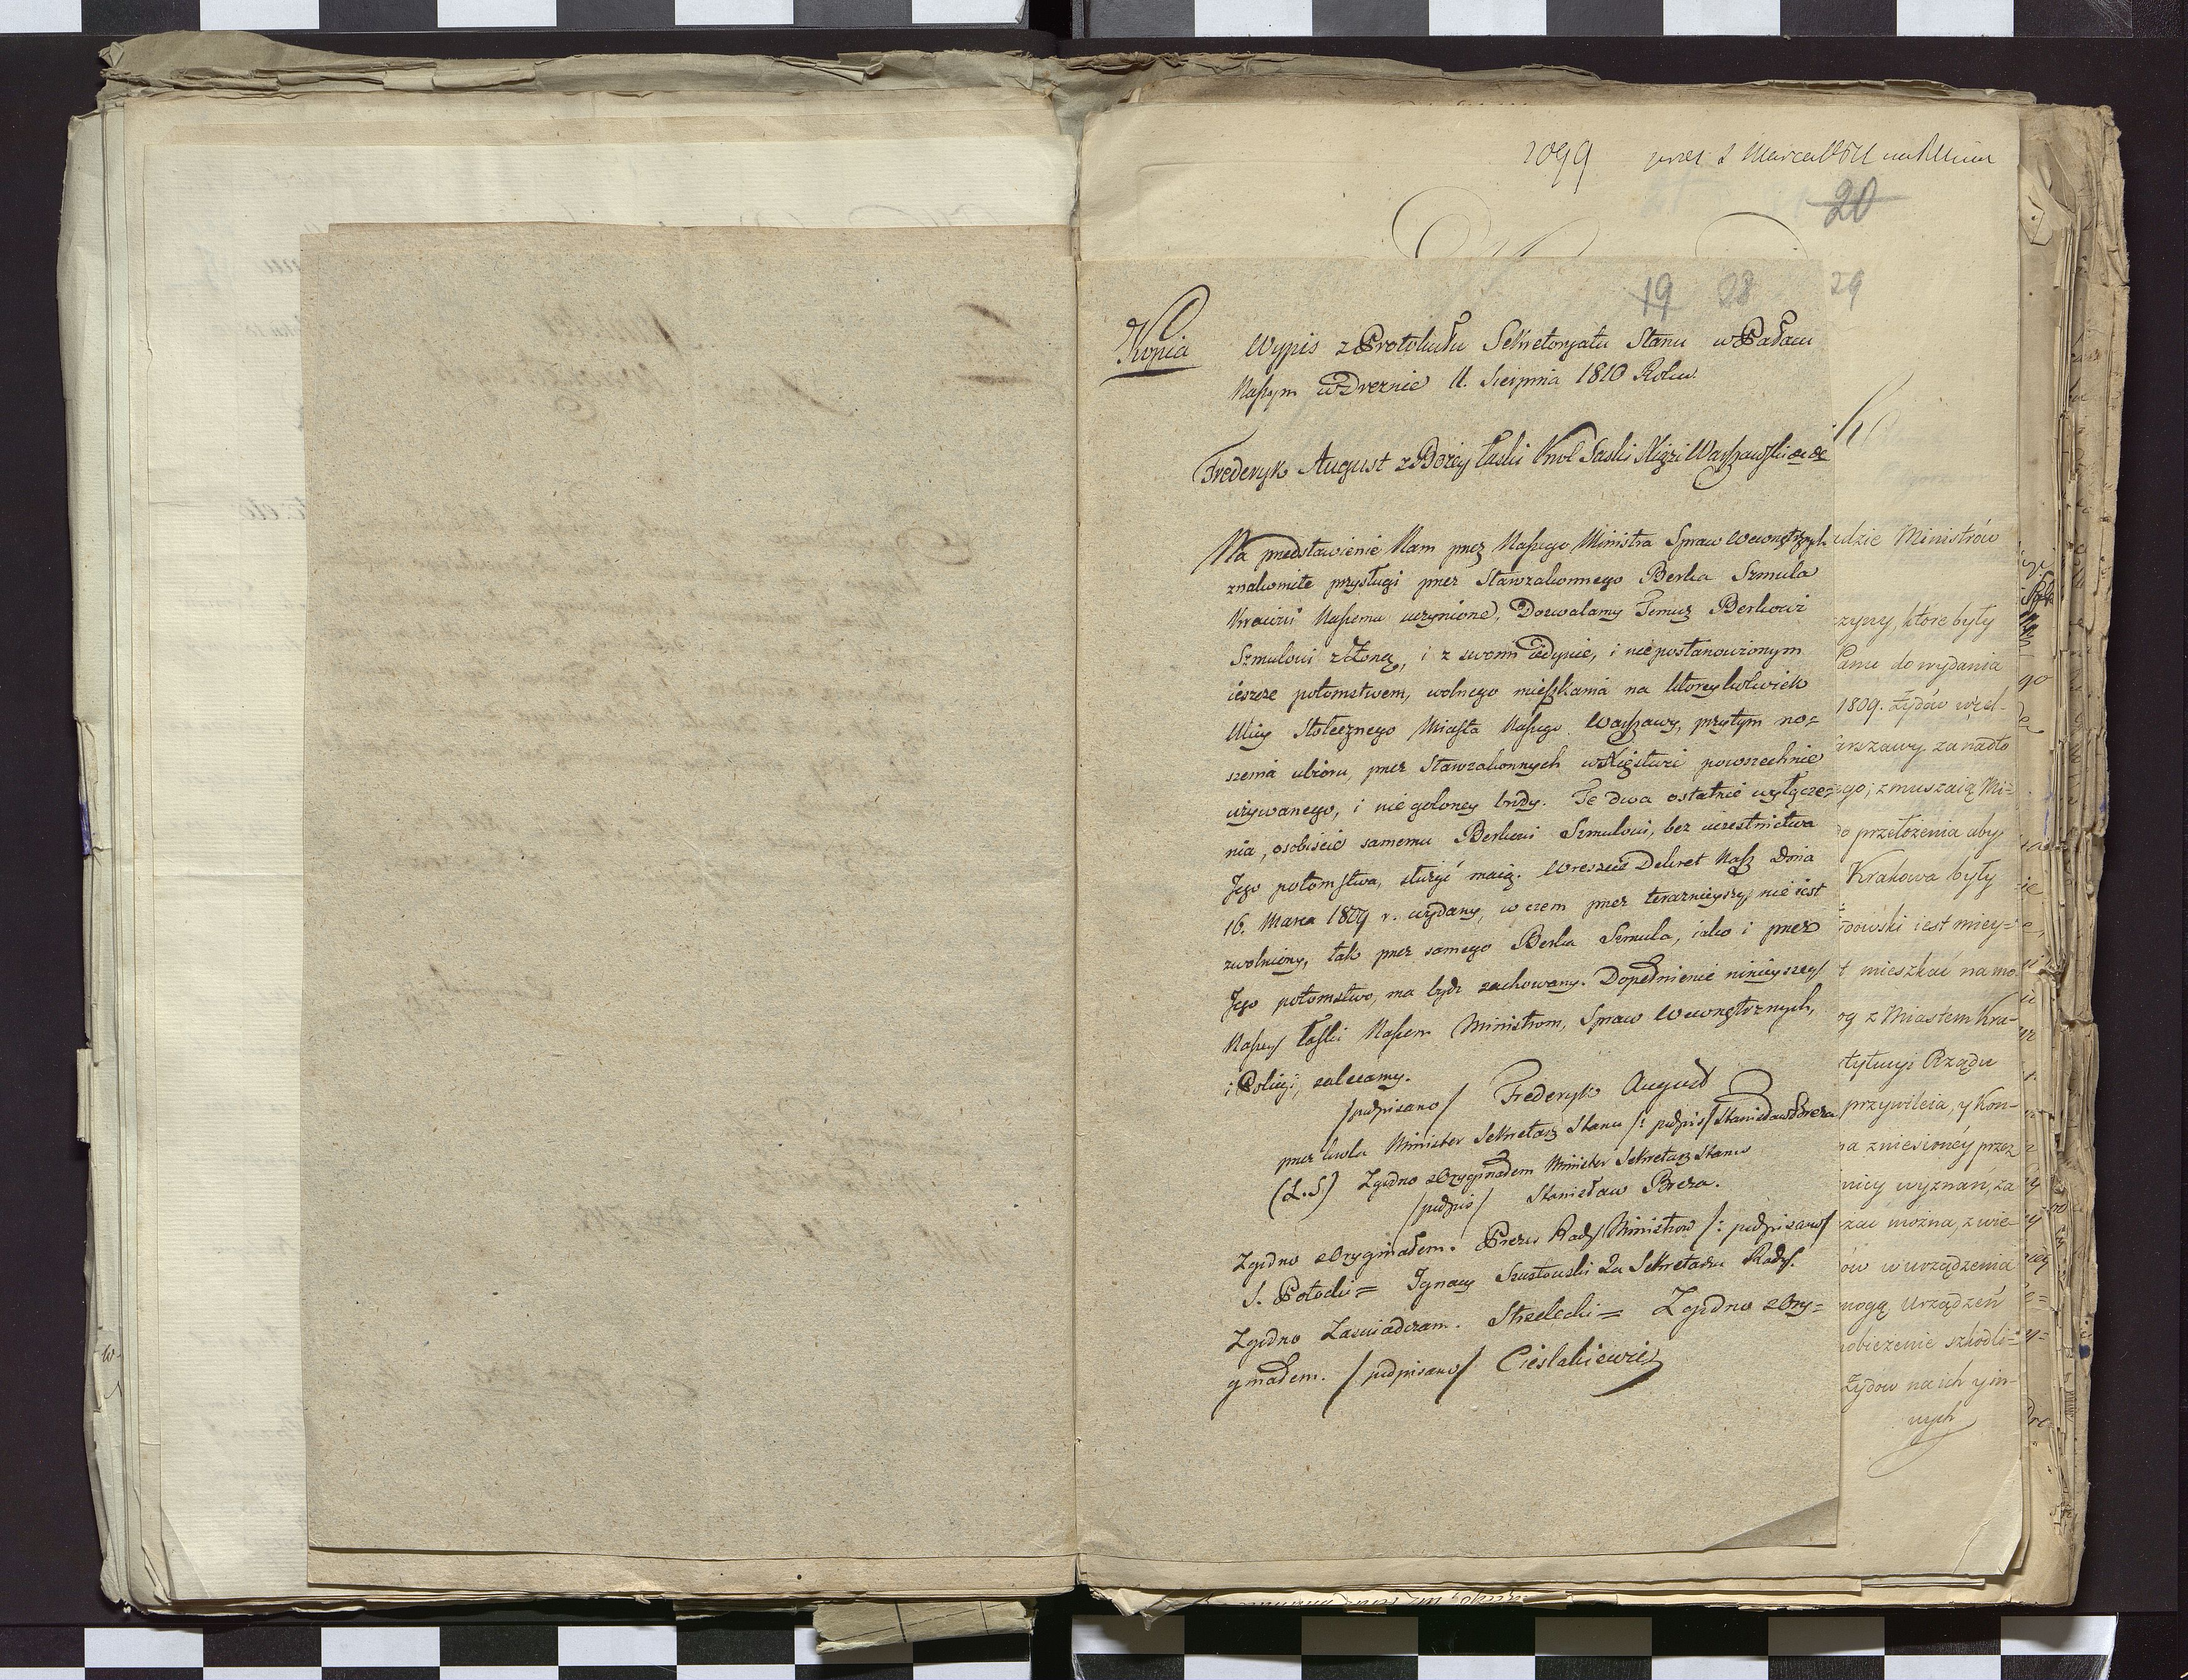 1099
20
19 28 29
Kopia
Wypis z Protokułu Sekretoryatu Stanu w Pałacu
Naszym w Dreznie 11. Sierpnia 1810 Roku.
Frederyk August z Bożey łaski Krol Saski Xiąże Warszawski &c &c
Na przedstawienie Nam przez Naszego Ministra Spraw Wewnętrznych
znakomite przysługi przez Starozakonnego Berka Szmula
Kraiowi Naszemu uczynione, Dozwalamy Temuz Berkowi
Szmulowi z Żoną, i z swoim iedynie, i niepostanowionym
ieszcze potomstwem, wolnego mieszkania na ktoreykolwiek
Ulicy Stołecznego Miasta Naszego Warszawy, przytym no=
szenia ubioru, przez Starozakonnych w Xięstwie powszechnie
używanego, i nie goloney brody. Te dwa ostatnie wyłącze=
nia, osobiście samemu Berkowi Szmulowi, bez uczestnictwa
Jego potomstwa, służyć maią. Wreszcie Dekret Nasz Dnia
16. Marca 1809 r. wydany, w czem przez teraznieyszy nie iest
zwolniony, tak przez samego Berka Szmula, iako i przez
Jego potomstwo, ma bydz zachowany. Dopełnienie ninieyszey
Naszey łaski Naszem Ministrom, Spraw Wewnętrznych,
i Policyi, zalecamy.
/podpisano/ Frederyk August
przez Krola Minister Sekretarz Stanu /: podpis/ Stanisław Breza
(L.S) Zgodno z Oryginałem Minister Sekretarz Stanu
/podpis/ Stanisław Breza.
Zgodno z Oryginałem. Prezes Rady Ministrow /: podpisano/
S. Potocki = Ignacy Szustowski Za Sekretarza Rady.
Zgodno Zaswiadczam. Strzelecki = Zgodno z Ory=
ginałem. /podpisano/ Cieslakiewicz
adzie Ministrów
czyny, które były
Panu do wydania
1809. Żydów wiel-
arszawy za nadto
ego; zmuszaią Mi=
do przełożenia aby
Krakowa były
idowski iest miey=
t mieszkać na mo
og z Miastem Kra-
stytucyi Rządu
przywileia, y Kon-
na zniesioney przez
nicy wyznań, za
zać można, z wie-
ów w urządzenia
mogą Urządzeń
obieżenie szkodli=
Żydow na ich y in-
nych